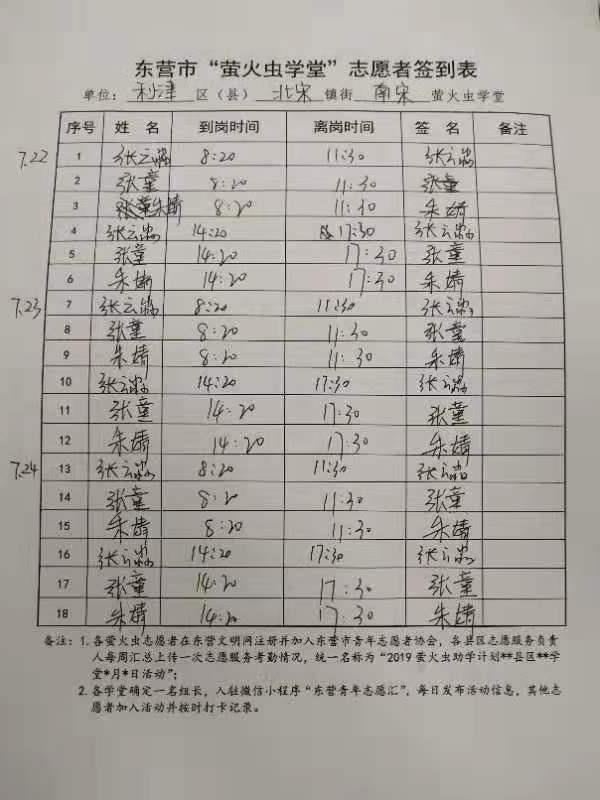 东营市“萤火虫学堂”志愿者签到表
单位：利津区（县）北宋镇街南宋萤火虫学堂
序号 姓 名 到岗时间 离岗时间 签 名 备注
7.22 1 张云 8:20 11:30 张云
2 张童 8:20 11:30 张童
3 朱婧 8:20 11:30 朱婧
4 张云 14:20 17:30 张云
5 张童 14:20 17:30 张童
6 朱婧 14:20 17:30 朱婧
7.23 7 张云 8:20 11:30 张云
8 张童 8:20 11:30 张童
9 朱婧 8:20 11:30 朱婧
10 张云 14:20 17:30 张云
11 张童 14:20 17:30 张童
12 朱婧 14:20 17:30 朱婧
7.24 13 张云 8:20 11:30 张云
14 张童 8:20 11:30 张童
15 朱婧 8:20 11:30 朱婧
16 张云 14:20 17:30 张云
17 张童 14:20 17:30 张童
18 朱婧 14:20 17:30 朱婧
备注：1. 各萤火虫志愿者在东营文明网注册并加入东营市青年志愿者协会，各县区志愿服务负责
人每周汇总上传一次志愿服务考勤情况，统一名称为“2019 萤火虫助学计划**县区**学
堂*月*日活动”；
2. 各学堂确定一名组长，入驻微信小程序“东营青年志愿汇”，每日发布活动信息，其他志
愿者加入活动并按时打卡记录。